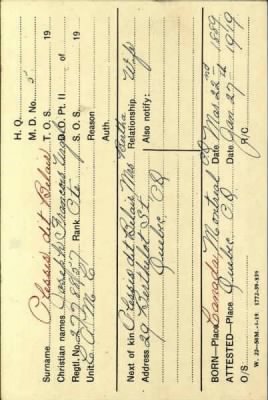 H. Q.
M. D. No. 5
Surname Plessis dit Belair T. O. S. 19
Christian names Joseph Francois D.O. Pt. II of 19
Regtl. No. Rank Pte S. O. S. 19
Unit C A M C Reason
Auth.
Next of kin Plessis dit Belair Mrs Relationship Wife
Address 29 St Also notify:
Quebec, P.Q.
BORN—Place Canada, Montreal P.Q. Date Mar. 22nd 1889
ATTESTED—Place Quebec P.Q. Date Jan. 27th 1919
O/S R/C
W. 22—50M.—1-19. 1772-39-839